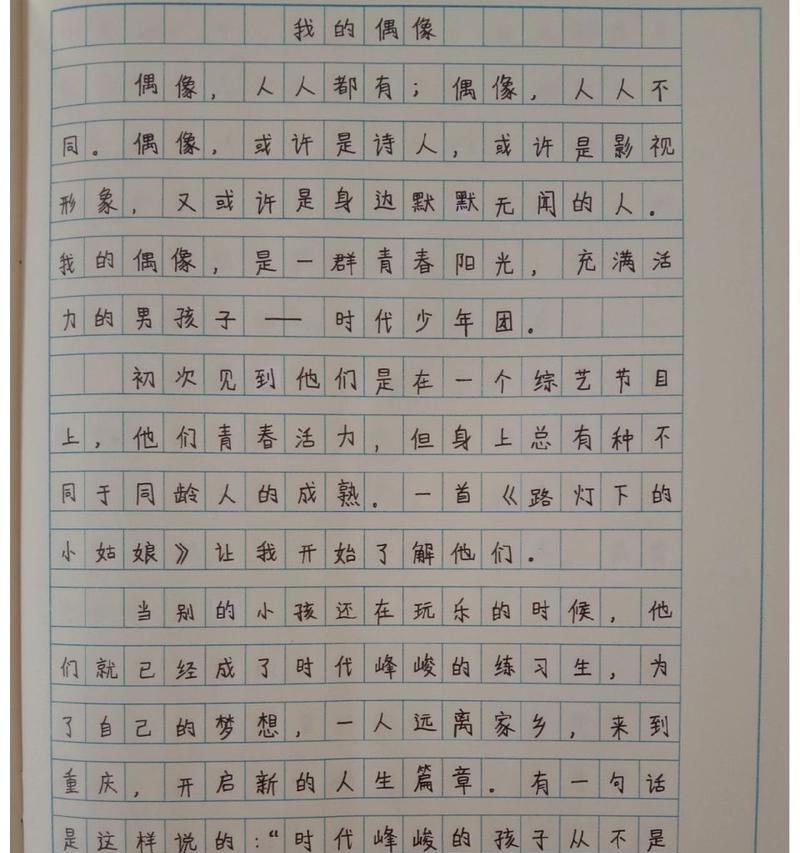 我的偶像
偶像，人人都有；偶像，人人不
同。偶像，或许是诗人，或许是影视
形象，又或许是身边默默无闻的人。
我的偶像，是一群青春阳光，充满活
力的男孩子——时代少年团。
初次见到他们是在一个综艺节目
上，他们青春活力，但身上总有种不
同于同龄人的成熟。一首《路灯下的
小姑娘》让我开始了解他们。
当别的小孩还在玩乐的时候，他
们就已经成了时代峰峻的练习生，为
了自己的梦想，一人远离家乡，来到
重庆，开启新的人生篇章。有一句话
是这样说的：“时代峰峻的孩子从不是